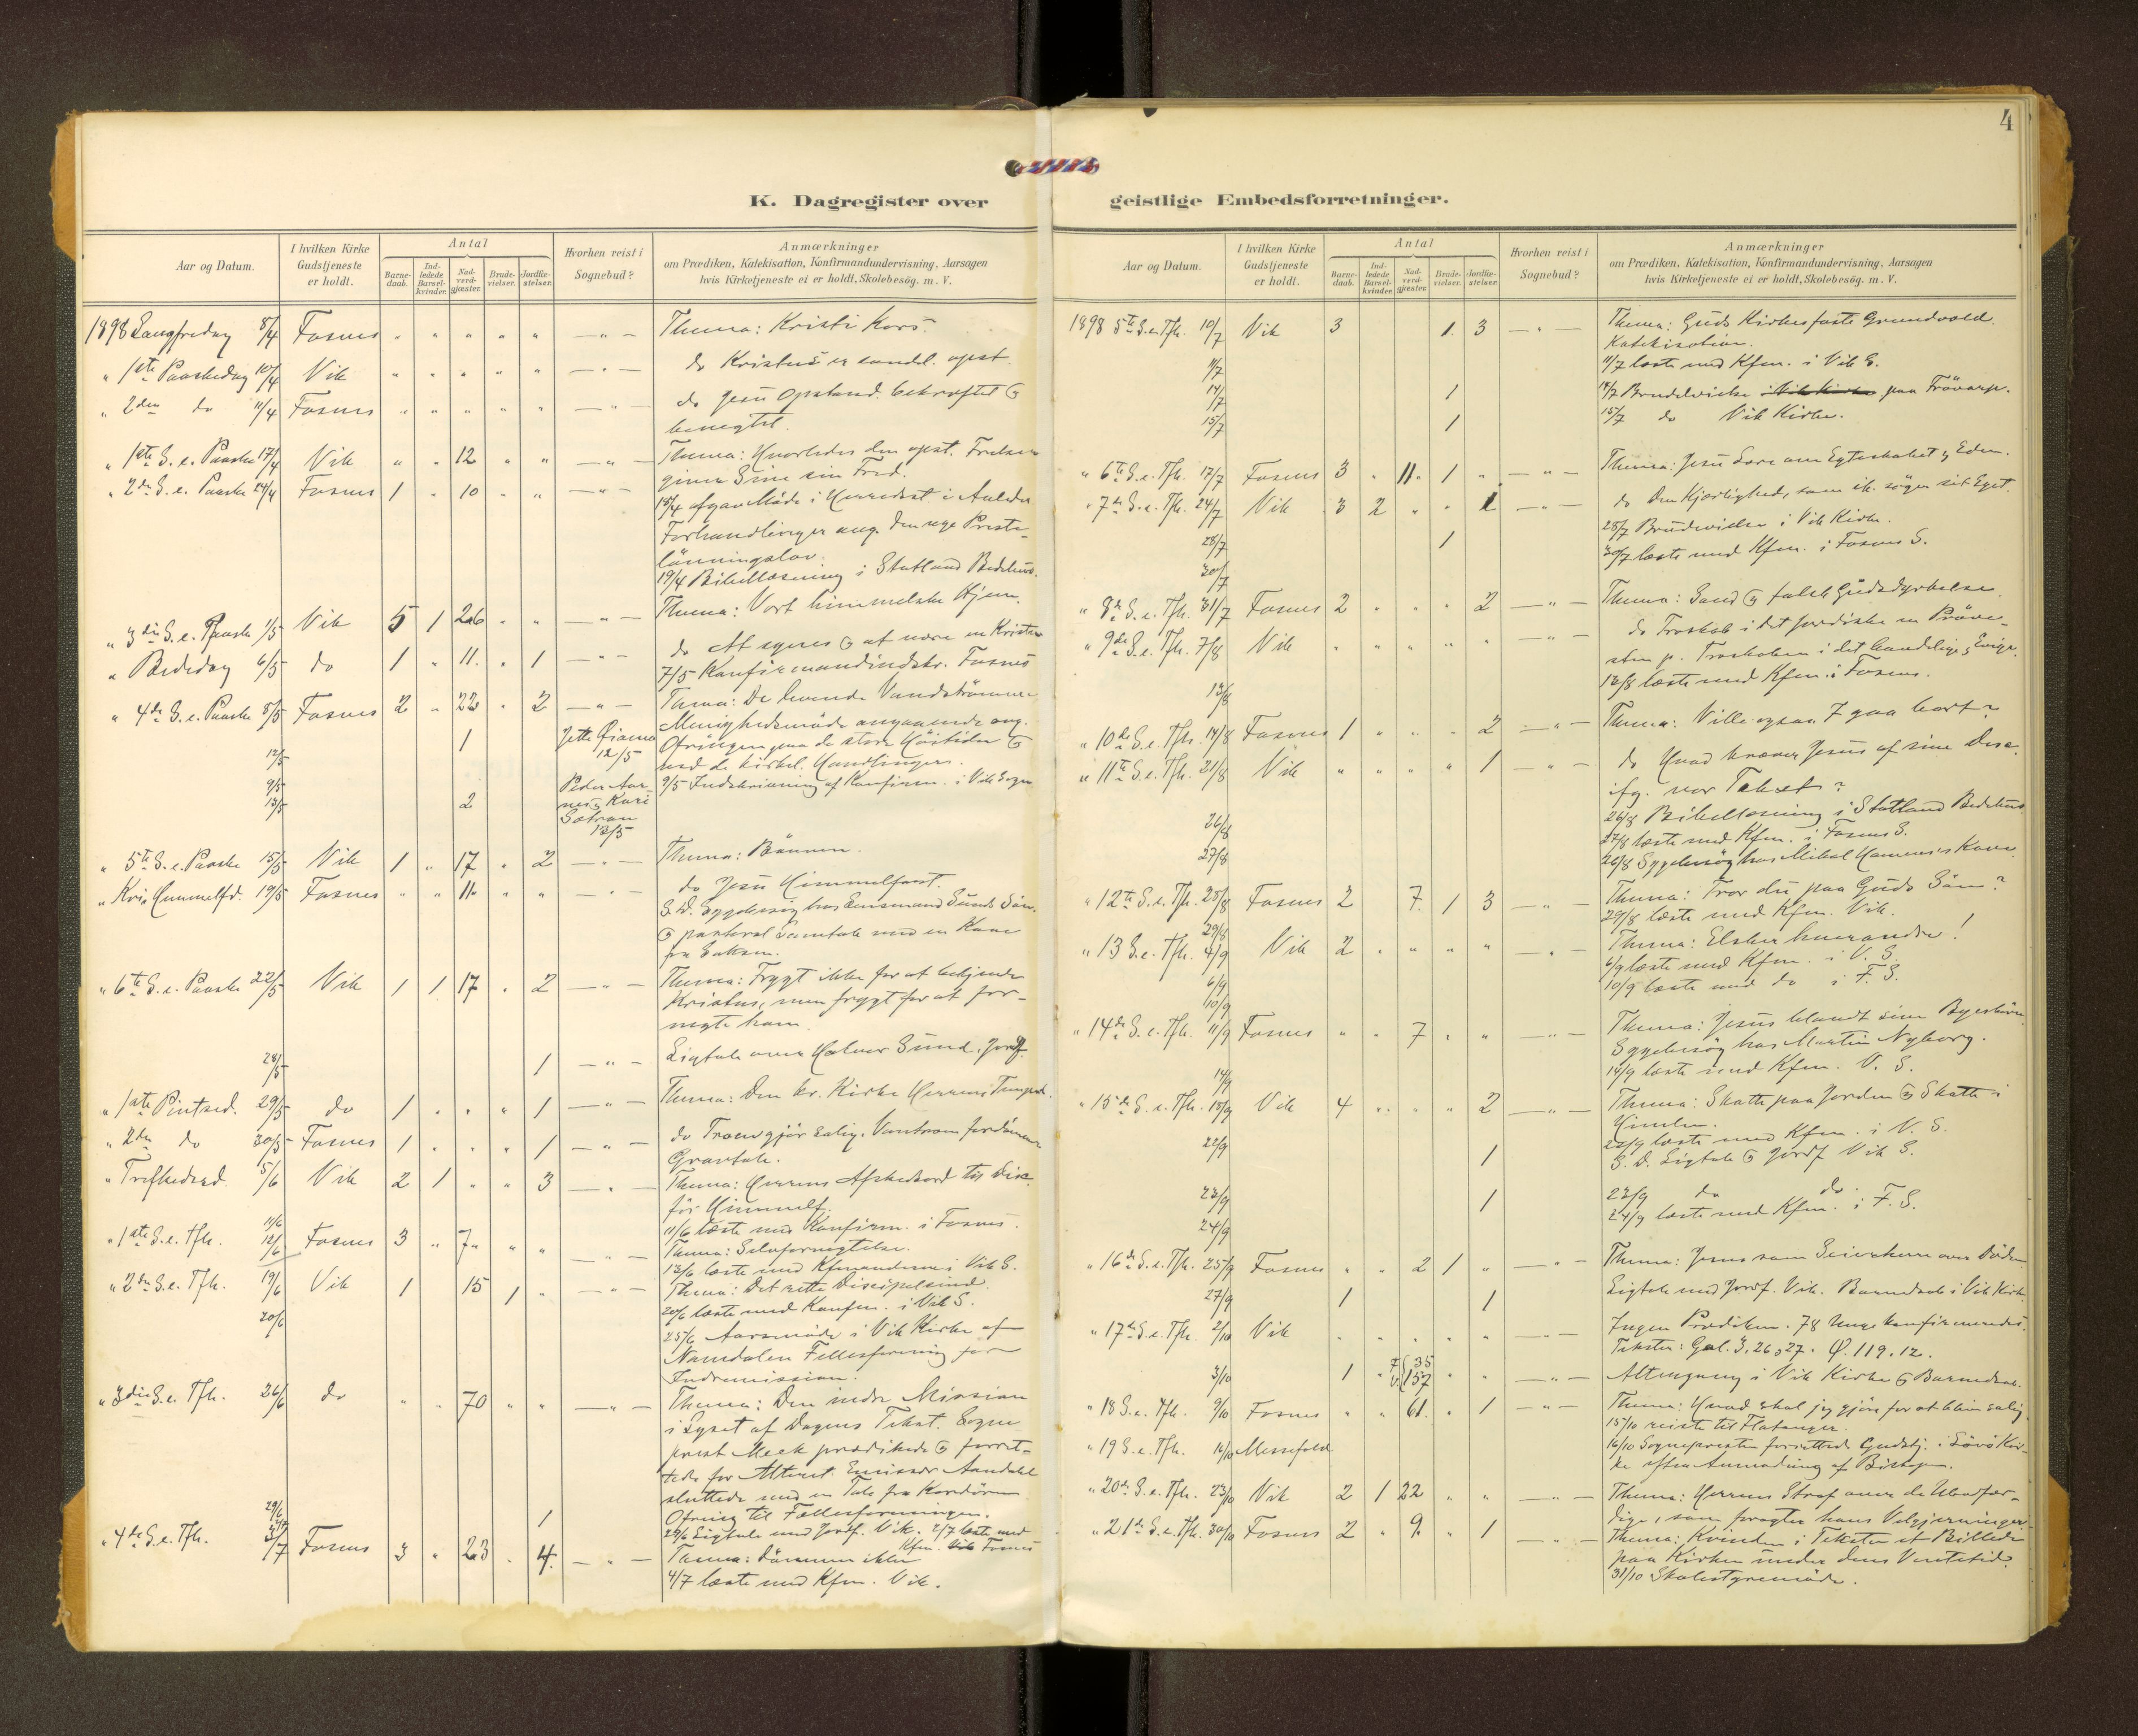 4
K. Dagregister over geistlige Embedsforretninger.
Aar og Datum.
I hvilken Kirke Gudstjeneste er holdt.
Antal
Barne-daab.
Ind-ledede Barsel-kvinder.
Nad-verd-gjæster.
Brude-vielser.
Jordfæ-stelser.
Hvorhen reist i Sognebud?
Anmærkninger
om Prædiken, Katekisation, Konfirmandundervisning, Aarsagen
hvis Kirketjeneste ei er holdt, Skolebesög. m. V.
1898 Langfredag 8/4 Fosnes " " " " " — " — Thema: Kristi Kors.
" 1ste Paaskedag 10/4 Vik " " " " " — " — do Kristus er sandel. opst.
" 2den do 11/4 Fosnes " " " " " — " — do Jesu Opstand. bekræftet &
benegtet.
" 1ste S. e. Paaske 17/4 Vik " " 12 " " — " — Thema: Hvorledes den opst. Frelser
giver Sine sin Fred.
" 2den S. e. Paaske 24/4 Fosnes 1 " 10 " " — " —
15/4 afgav Möde i Herredsst. i Anledn.
Forhandlinger ang. den nye Præste-
lönningslov.
19/4 Bibellæsning i Statland Bedehus.
" 3die S. e. Paaske 1/5 Vik 5 1 26 " " — " — Thema: Vort himmelske Hjem.
" Bededag 6/5 do 1 " 11. " 1 — " — do At synes & at være en Kristen
7/5 Konfirmandindskr. Fosnes
" 4de S. e. Paaske 8/5 Fosnes 2 " 22 " 2 — " — Thema: De levende Vandströmme
Menighedsmöde angaaende ang.
12/5 1 Jette Öiamo 12/5 Ofringen paa de store Höitider &
ved de kirkel. Handlinger.
9/5 9/5 Indskrivning af Konfirm. i Vik Sogn
13/5 2 Peder Aar-
nes & Kari
Sætran
13/5
" 5te S. e. Paaske 15/5 Vik 1 " 17 " 2 — " — Thema: Bönnen.
" Kris Himmelfd. 19/5 Fosnes " " 11. " " — " — do Jesu Himmelfart.
S. D. Sygebesög hos Lensmand Sunds Sön.
& pastoral samtale med en Kone
fra
" 6te S. e. Paaske 22/5 Vik 1 1 17 " 2 — " — Thema: Frygt ikke for at bekjende
Kristus, men frygt for at for-
negte ham.
28/5 1 — " — Ligtale over Halvor Sund. Jordf.
" 1ste Pintsed. 29/5 do 1 " " " 1 — " — Thema: Den kr. Kirke Herrens Tempel.
" 2den do 30/5 Fosnes 1 " " " 1 — " — do Troen gjör salig. Vantroen fordömmer
Gravtale.
" Trefheds d. 5/6 Vik 2 1 " " 3 — " — Thema: Herrens Afskedsord til Disc.
för Himmelf.
11/6 11/6 læste med Konfirm. i Fosnes.
" 1ste S. e. Tfh. 12/6 Fosnes 3 " 7 " " — " — Thema: Selvfornegtelse.
13/6 læste med Kfmanderne i Vik S.
" 2den S. e. Tfh. 19/6 Vik 1 15 1 " — " — Thema: Det rette Discipelsind.
20/6 20/6 læste med Konfm. i Vik S.
25/6 Aarsmöde i Vik Kirke af
Namdalen Fellesforening for
Indremission.
" 3die S. e. Tfh. 26/6 do " " 70 " " — " — Thema: Den indre Mission
i Lyset af Dagens Tekst. Sogne
prest Meek prædikede & forret-
tede for Alteret. Emissær Aandahl
sluttede med en Tale fra Kordören
Ofring til Fællesforeningen.
29/6 1 29/6 Ligtale med Jordf. Vik. 2/7 læste med
Kfm. Fosnes
" 4de S. e. Tfh. 3/7 Fosnes 3 " 23 " 4. — " — Thema: Dömmer ikke
4/7 læste med Kfm. Vik.
Aar og Datum.
I hvilken Kirke Gudstjeneste er holdt.
Antal
Barne-daab.
Ind-ledede Barsel-kvinder.
Nad-verd-gjæster.
Brude-vielser.
Jordfæ-stelser.
Hvorhen reist i Sognebud?
Anmærkninger
om Prædiken, Katekisation, Konfirmandundervisning, Aarsagen
hvis Kirketjeneste ei er holdt, Skolebesög. m. V.
1898 5te S. e. Tfh. 10/7 Vik 3 1. 3 — " — Thema: Guds Kirkes faste Grundvold.
Katekisation.
11/7 11/7 læste med Kfm. i Vik S.
14/7 1 14/7 Brudevielse i Vik Kirke paa
15/7 1 15/7 do Vik Kirke.
" 6te S. e. Tfh. 17/7 Fosnes 3 " 11. 1 " — " — Thema: Jesu Lære om Egteskabet & Eden.
" 7de S. e. Tfh. 24/7 Vik 3 2 " " 1 — " — do Den Kjærlighed, som ik. söger sit Eget.
28/7 1 28/7 Brudevielse i Vik Kirke.
30/7 30/7 læste med Kfm. i Fosnes S.
" 8de S. e. Tfh. 31/7 Fosnes 2 " " " 2 — " — Thema: Sand & falsk Gudsdyrkelse.
" 9de S. e. Tfh. 7/8 Vik " " " " " — " — do Troskab i det jordiske en Pröve-
sten p. Troskaben i det Aandelige & Evige.
13/8 13/8 læste med Kfm. i Fosnes.
" 10de S. e. Tfh. 14/8 Fosnes 1 " " " 2 — " — Thema: Ville ogsaa I gaa bort?
" 11te S. e. Tfh. 21/8 Vik " " " " 1 — " — do Hvad kræver Jesus af sine Disc.
ifg. vor Tekst?
26/8 26/8 Bibellæsning i Statland Bedehus
27/8 27/8 læste med Kfm. i Fosnes S.
26/8 Sygebesög hos Mikal Hamnes's Kone.
" 12te S. e. Tfh. 28/8 Fosnes 2 7. 1 3 — " — Thema: Tror du paa Guds Sön?
29/8 29/8 læste med Kfm. Vik.
" 13 S. e. Tfh. 4/9 Vik 2 " " " " — " — Thema: Elsker hverandre!
6/9 6/9 læste med Kfm. i V. S.
10/9 10/9 læste med do i F. S.
" 14de S. e. Tfh. 11/9 Fosnes " " 7 " " — " — Thema: Jesus blandt sine Byesbörn.
Sygebesög hos Martin Nyborg.
14/9 14/9 læste med Kfm. V. S.
" 15de S. e. Tfh. 18/9 Vik 4 " " " 2 — " — Thema: Skatte paa Jorden & Skatte i
Himlen.
22/9 22/9 læste med Kfm. i V. S.
1 S. D. Ligtale & Jordf Vik S.
23/9 1 23/9 do do
24/9 24/9 læste med Kfm. i F. S.
" 16de S. e. Tfh. 25/9 Fosnes " " 2 1 " — " — Thema: Jesus som Seierherre over Döden
27/9 1 1 Ligtale med Jordf. Vik. Barnedaab i Vik Kirke.
" 17de S. e. Tfh. 2/10 Vik " " " " " — " — Ingen Prædiken. 78 Unge konfirmeredes.
Tekster: Gal. 3, 26 & 27. Ψ. 119. 12.
3/10 1 " F. 35 V. 157 " " — " — Altergang i Vik Kirke & Barnedaab.
" 18 S. e. Tfh. 9/10 Fosnes " " 61. " 1 — " — Thema: Hvad skal jeg gjöre for at blive salig
15/10 reiste til Flatanger.
" 19 S. e. Tfh. 16/10 Messefald 16/10 Sognepresten forrettede Gudstj. i Lövö Kir-
ke efter Anmodning af Biskopen.
" 20de S. e. Tfh. 23/10 Vik 2 1 22 " " — " — Thema: Herrens Straf over de Ubodfær-
dige, som foragter hans Velgjerninger.
" 21de S. e. Tfh. 30/10 Fosnes 2 " 9. " 1 — " — Thema: Kvinden i Teksten et Billede
paa Kirken under dens Ventetid.
31/10 Skolestyremöde.